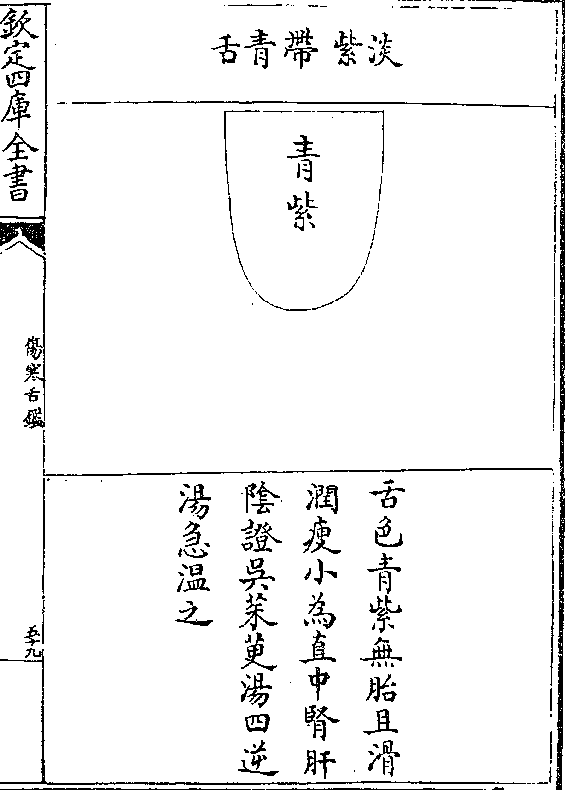 淡紫帶青舌
青紫
舌色青紫無胎且滑
潤瘦小為直中腎肝
陰證吳茱萸湯四逆
湯急温之
欽定四庫全書
傷寒舌鑑
五十九